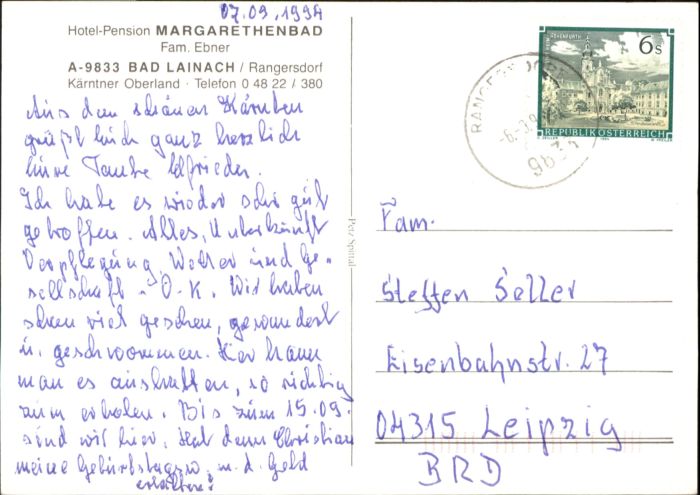 07.09.1994
Hotel-Pension MARGARETHENBAD
Fam. Ebner
A-9833 BAD LAINACH / Rangersdorf
Kärntner Oberland · Telefon 0 48 22 / 380
Aus dem schönen Kärnten
grüßt Euch ganz herzlich
Eure Tante Elfriede.
Ich habe es wieder sehr gut
getroffen. Alles, Unterkunft
Verpflegung, Wetter und Ge-
sellschaft - O.K. Wir haben
schon viel gesehen, gewandert
u. geschwommen. Hier kann
man es aushalten, so richtig
zum erholen. Bis zum 15.09.
sind wir hier. Hat denn Christian
meine Geburtstagsw. m. d. Geld
erhalten?
Post Spittal
6 s
REPUBLIK ÖSTERREICH
9834
Fam.
Steffen Seller
Eisenbahnstr. 27
04315 Leipzig
BRD